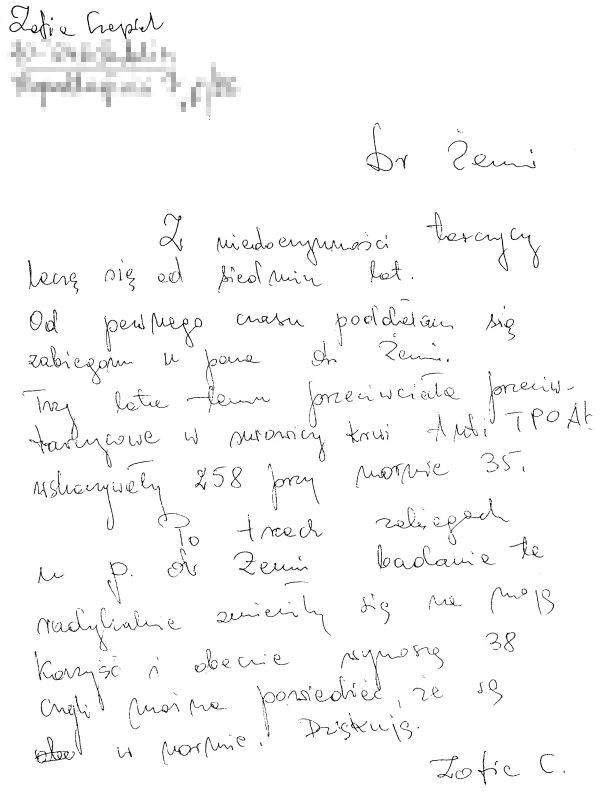 Zofia
Dr Żemi
Z niedoczynności tarczycy
leczę się od siedmiu lat.
Od pewnego czasu poddałam się
zabiegom u pana dr Żemi.
Trzy lata temu przeciwciała przeciw-
tarczycowe w surowicy krwi Anti TPO At
wskazywały 258 przy normie 35.
Po trzech zabiegach
u p. dr Żemi badania te
radykalnie zmieniły się na moją
korzyść i obecnie wynoszą 38
czyli można powiedzieć, że są
w normie. Dziękuję.
Zofia C.